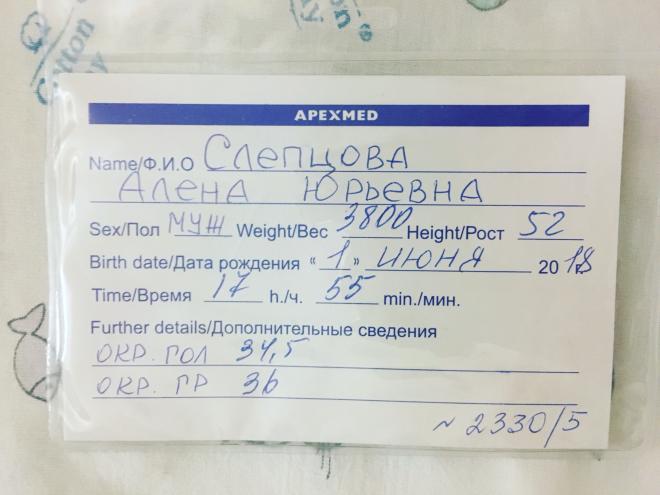 APEXMED
Name/Ф.И.О Слепцова
Алена Юрьевна
Sex/Пол муж Weight/Вес 3800 Height/Рост 52
Birth date/Дата рождения «1» июня 2018
Time/Время 17 h./ч. 55 min./мин.
Further details/Дополнительные сведения
окр. гол 34,5
окр. гр 36
~ 2330/5